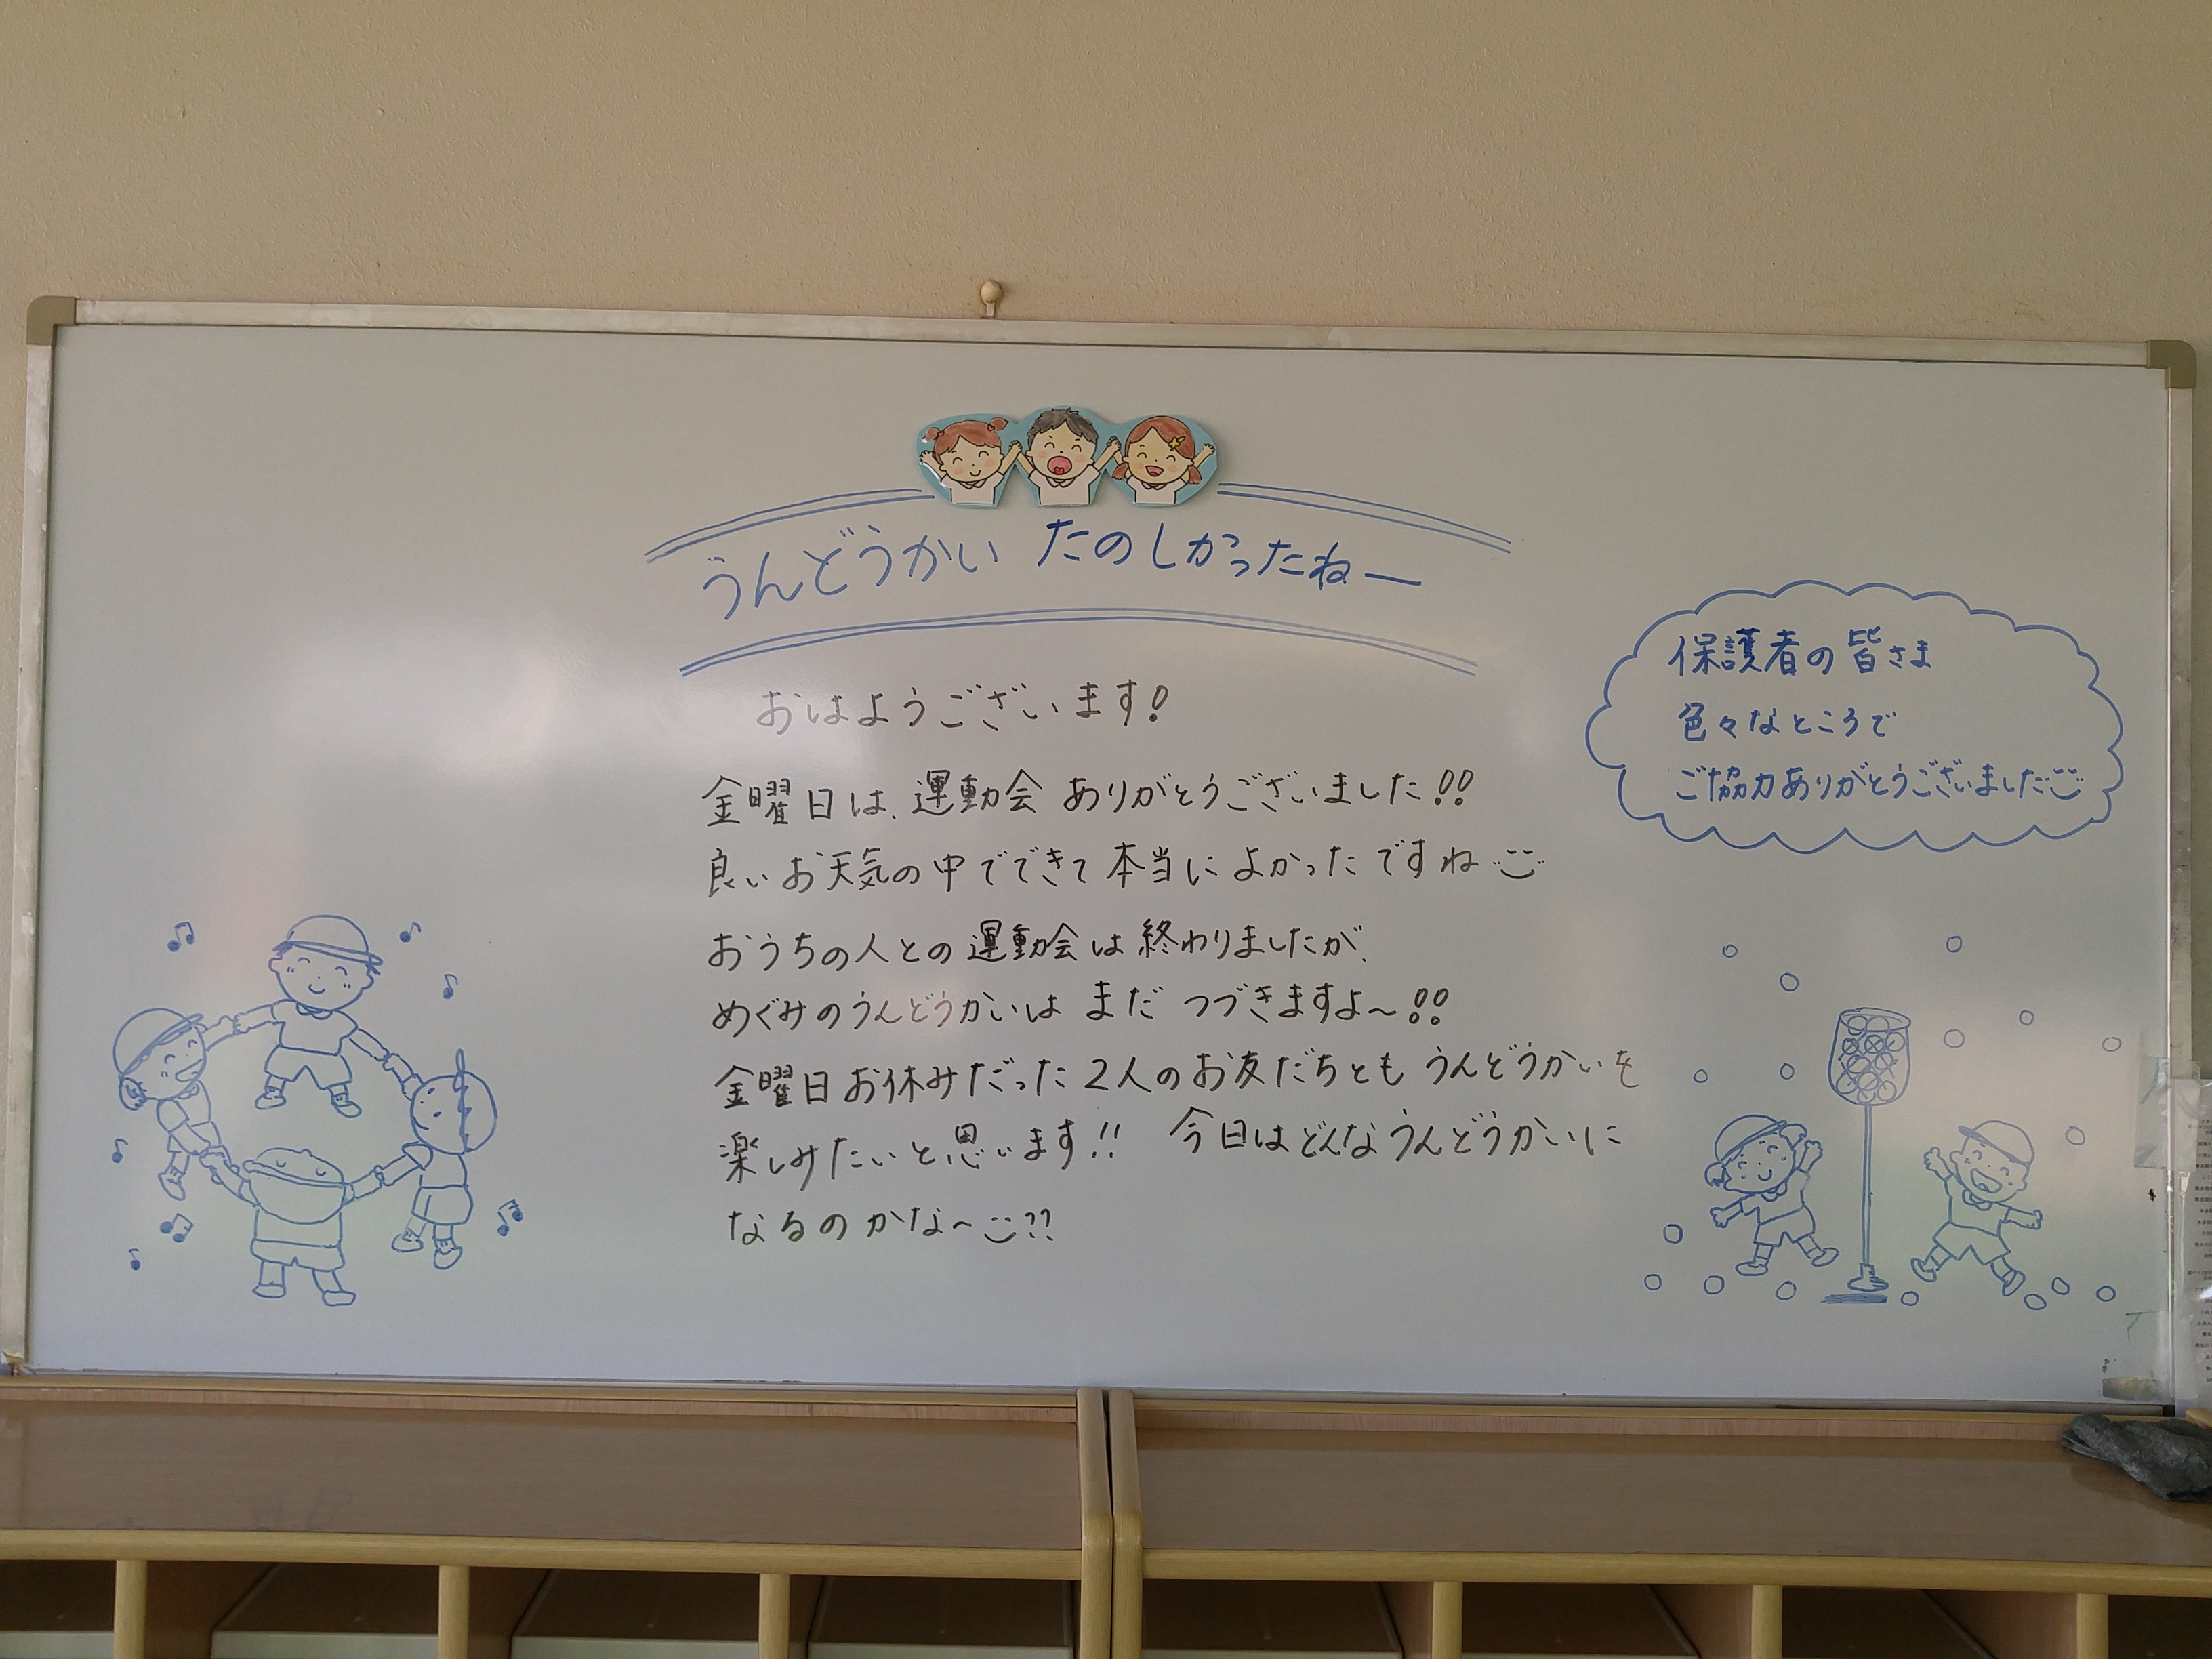 うんどうかい たのしかったねー
おはようございます!
金曜日は、運動会 ありがとうございました!!
良いお天気の中でできて本当によかったですね
おうちの人との運動会は終わりましたが、
めぐみのうんどうかいは まだ つづきますよ〜!!
金曜日お休みだった2人のお友だちとも うんどうかいを
楽しみたいと思います!! 今日はどんなうんどうかいに
なるのかな〜??
保護者の皆さま
色々なところで
ご協力ありがとうございました